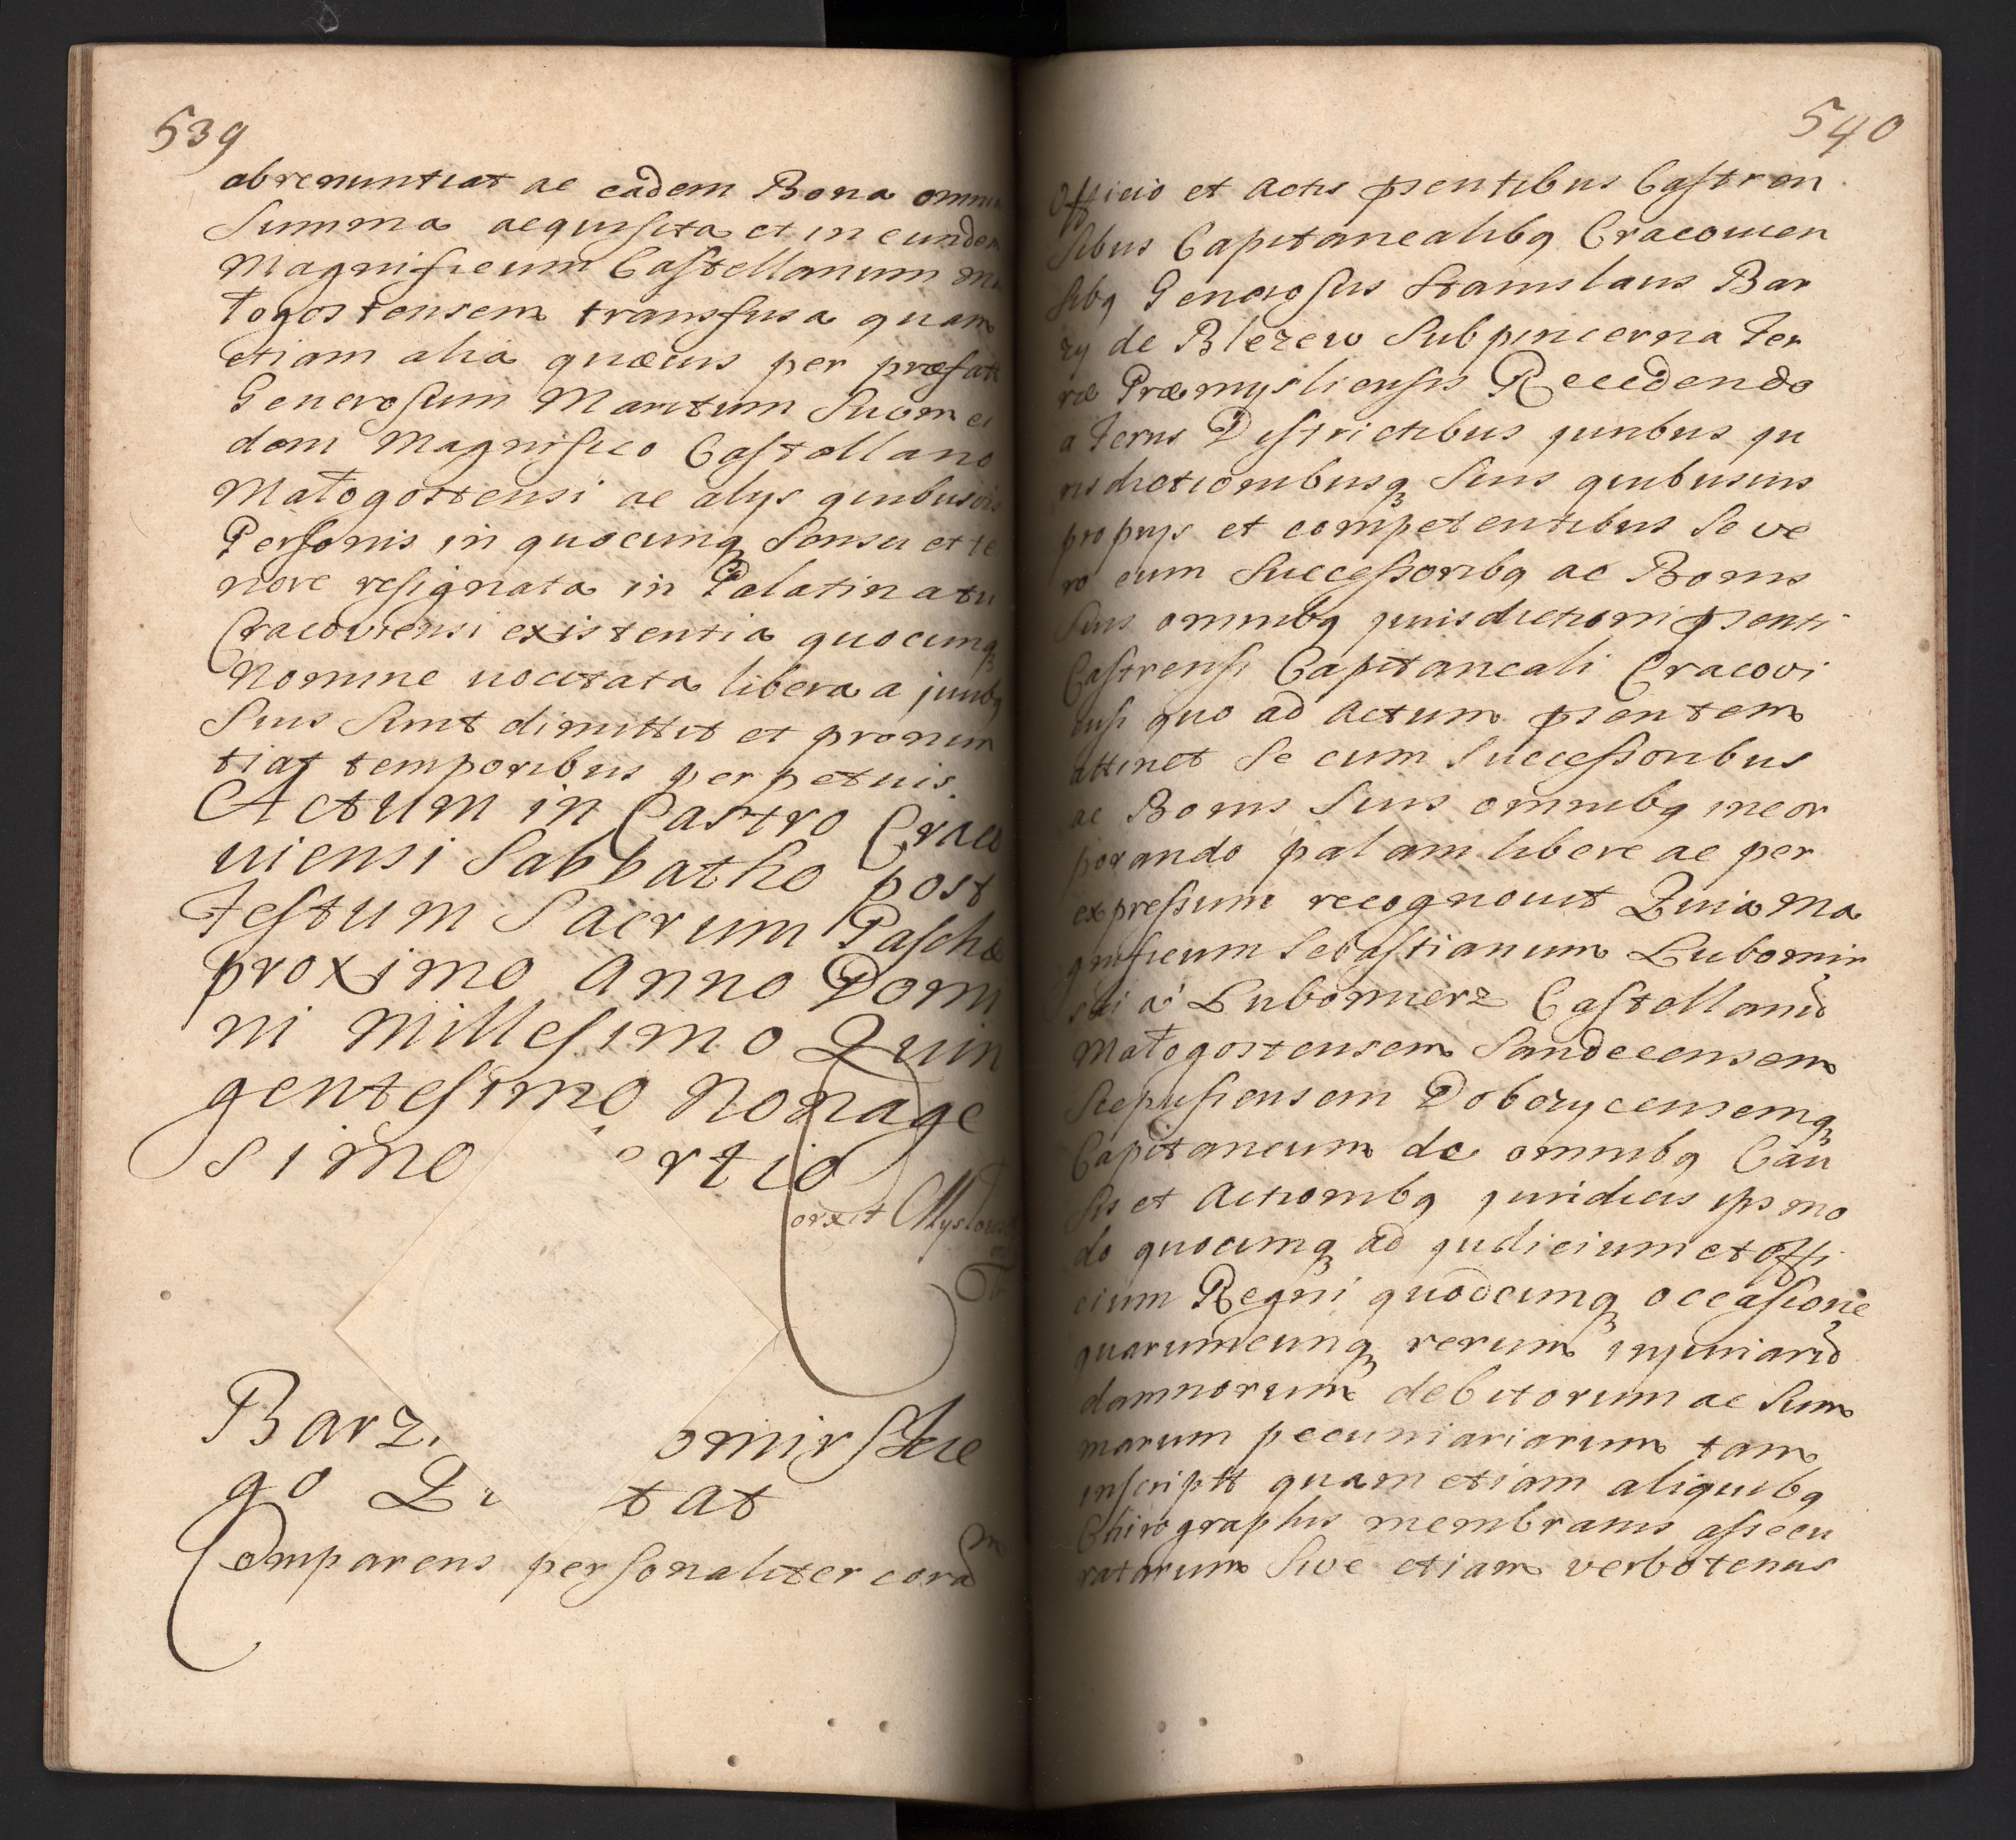 539
abrenuntiat ac eadem Bona omni
Summa acquisita et in eundem
Magnificum Castellanum Ma
łogostensem transfusa quam
etiam alia quævis per præfat
Generosum Maritum Suum ei
dem Magnifico Castellano
Małogostensi ac alys quibusvis
Personis in quocunq Sensu et te
nore resignata in Palatinatu
Cracoviensi existentia quocunq
Nomine vocitata libera a juribq
Suis Sint dimittit et pronun
tiat temporibus perpetuis.
Actum in Castro Craco
viensi Sabbatho post
Festum Sacrum Paschæ
proximo Anno Domi
ni Millesimo Quin
gentesimo Nonage
simo ertio
orxit
Barz. omirskie
go L tat
Comparens personaliter corā
540
Officio et Actis pñentibus Castren
sibus Capitanealibq Cracovien
sibq Generosus Stanislaus Bar
zy de Blezew Subpincerna Ter
ræ Præmysliensis Recedendo
a Terris Districtibus juribus ju
risdictionibusq Suis quibusvis
proprys et competentibus Se ve
ro cum Successoribq ac Bonis
Suis omnibq jurisdictioni pñenti
Castrensi Capitaneali Cracovi
ensi quo ad Actum pñentem
attinet Se cum Successoribus
ac Bonis Suis omnibq incor
porando palam libere ac per
expressum recognovit Quia Ma
gnificum Sebastianum Lubomir
ski à Lubomierz Castellanū
Małogostensem Sandecensem
Scepusiensem Dobczycensemq
Capitaneum de omnibq Cau
sis et Actionibq juridicis ipso mo
do quocunq ad judicium et offi
cium Regni quodcunq occasione
quarumcunq rerum injuriarū
damnorum debitorum ac Sum
marum pecuniariarum tam
inscriptt quam etiam aliquibq
Chirographis membranis assecu
ratarum Sive etiam verbotenus